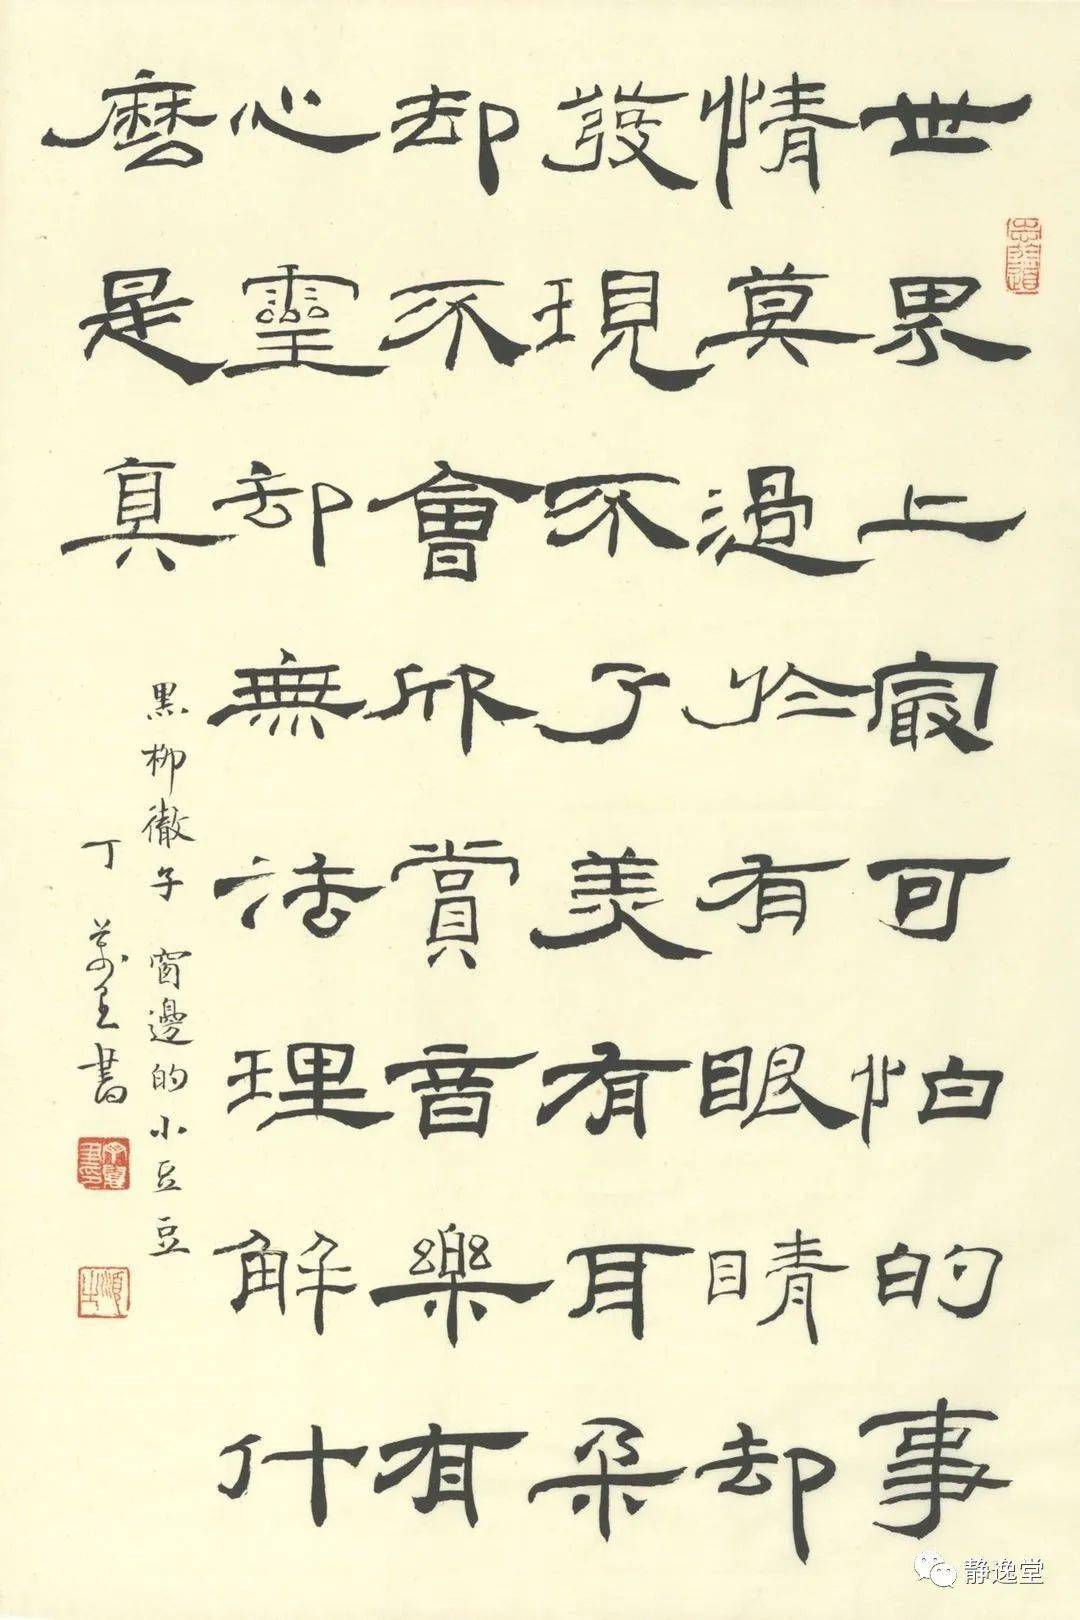 世界上最可怕的事
情莫過於有眼睛却
發現不了美有耳朵
却不會欣賞音樂有
心靈却無法理解什
麼是真
黑柳徹子 窗邊的小豆豆
丁 書
静逸堂